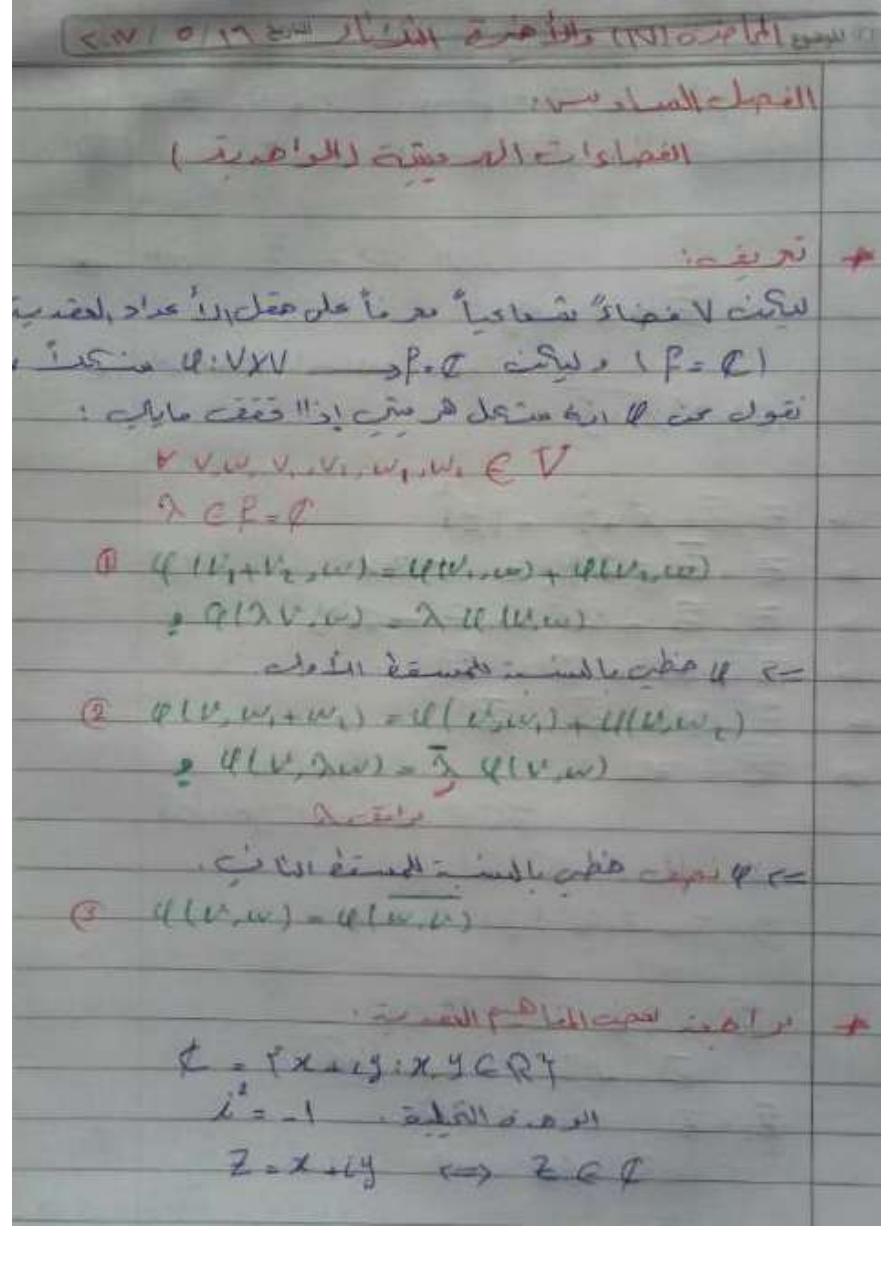 المحاضرة (١٧) والأخيرة الثلاثاء ٢٠١٧/٥/١٦
الفصل السادس:
الفضاءات الهرميتية (الواحدية)
* تعريف:
ليكن V فضاءً شعاعياً معرفاً على حقل الأعداد العقدية
(F = ℂ) وليكن φ: V×V → F = ℂ
نقول عن φ إنه هرميتي إذا حقق مايلي:
∀ v, w, v₁, v₂, w₁, w₂ ∈ V
λ ∈ F = ℂ
① φ(v₁+v₂, w) = φ(v₁, w) + φ(v₂, w)
و φ(λv, w) = λ φ(v, w)
=> φ خطي بالنسبة للمسقط الأول
② φ(v, w₁+w₂) = φ(v, w₁) + φ(v, w₂)
و φ(v, λw) = λ̄ φ(v, w)
مرافق λ
=> φ نصف خطي بالنسبة للمسقط الثاني.
③ φ(v, w) = φ(w̅,̅ ̅v̅)
* مراجعة لبعض المفاهيم العقدية:
ℂ = {x+iy : x, y ∈ ℝ}
i² = -1 الوحدة التخيلية.
Z = x+iy <=> Z ∈ ℂ